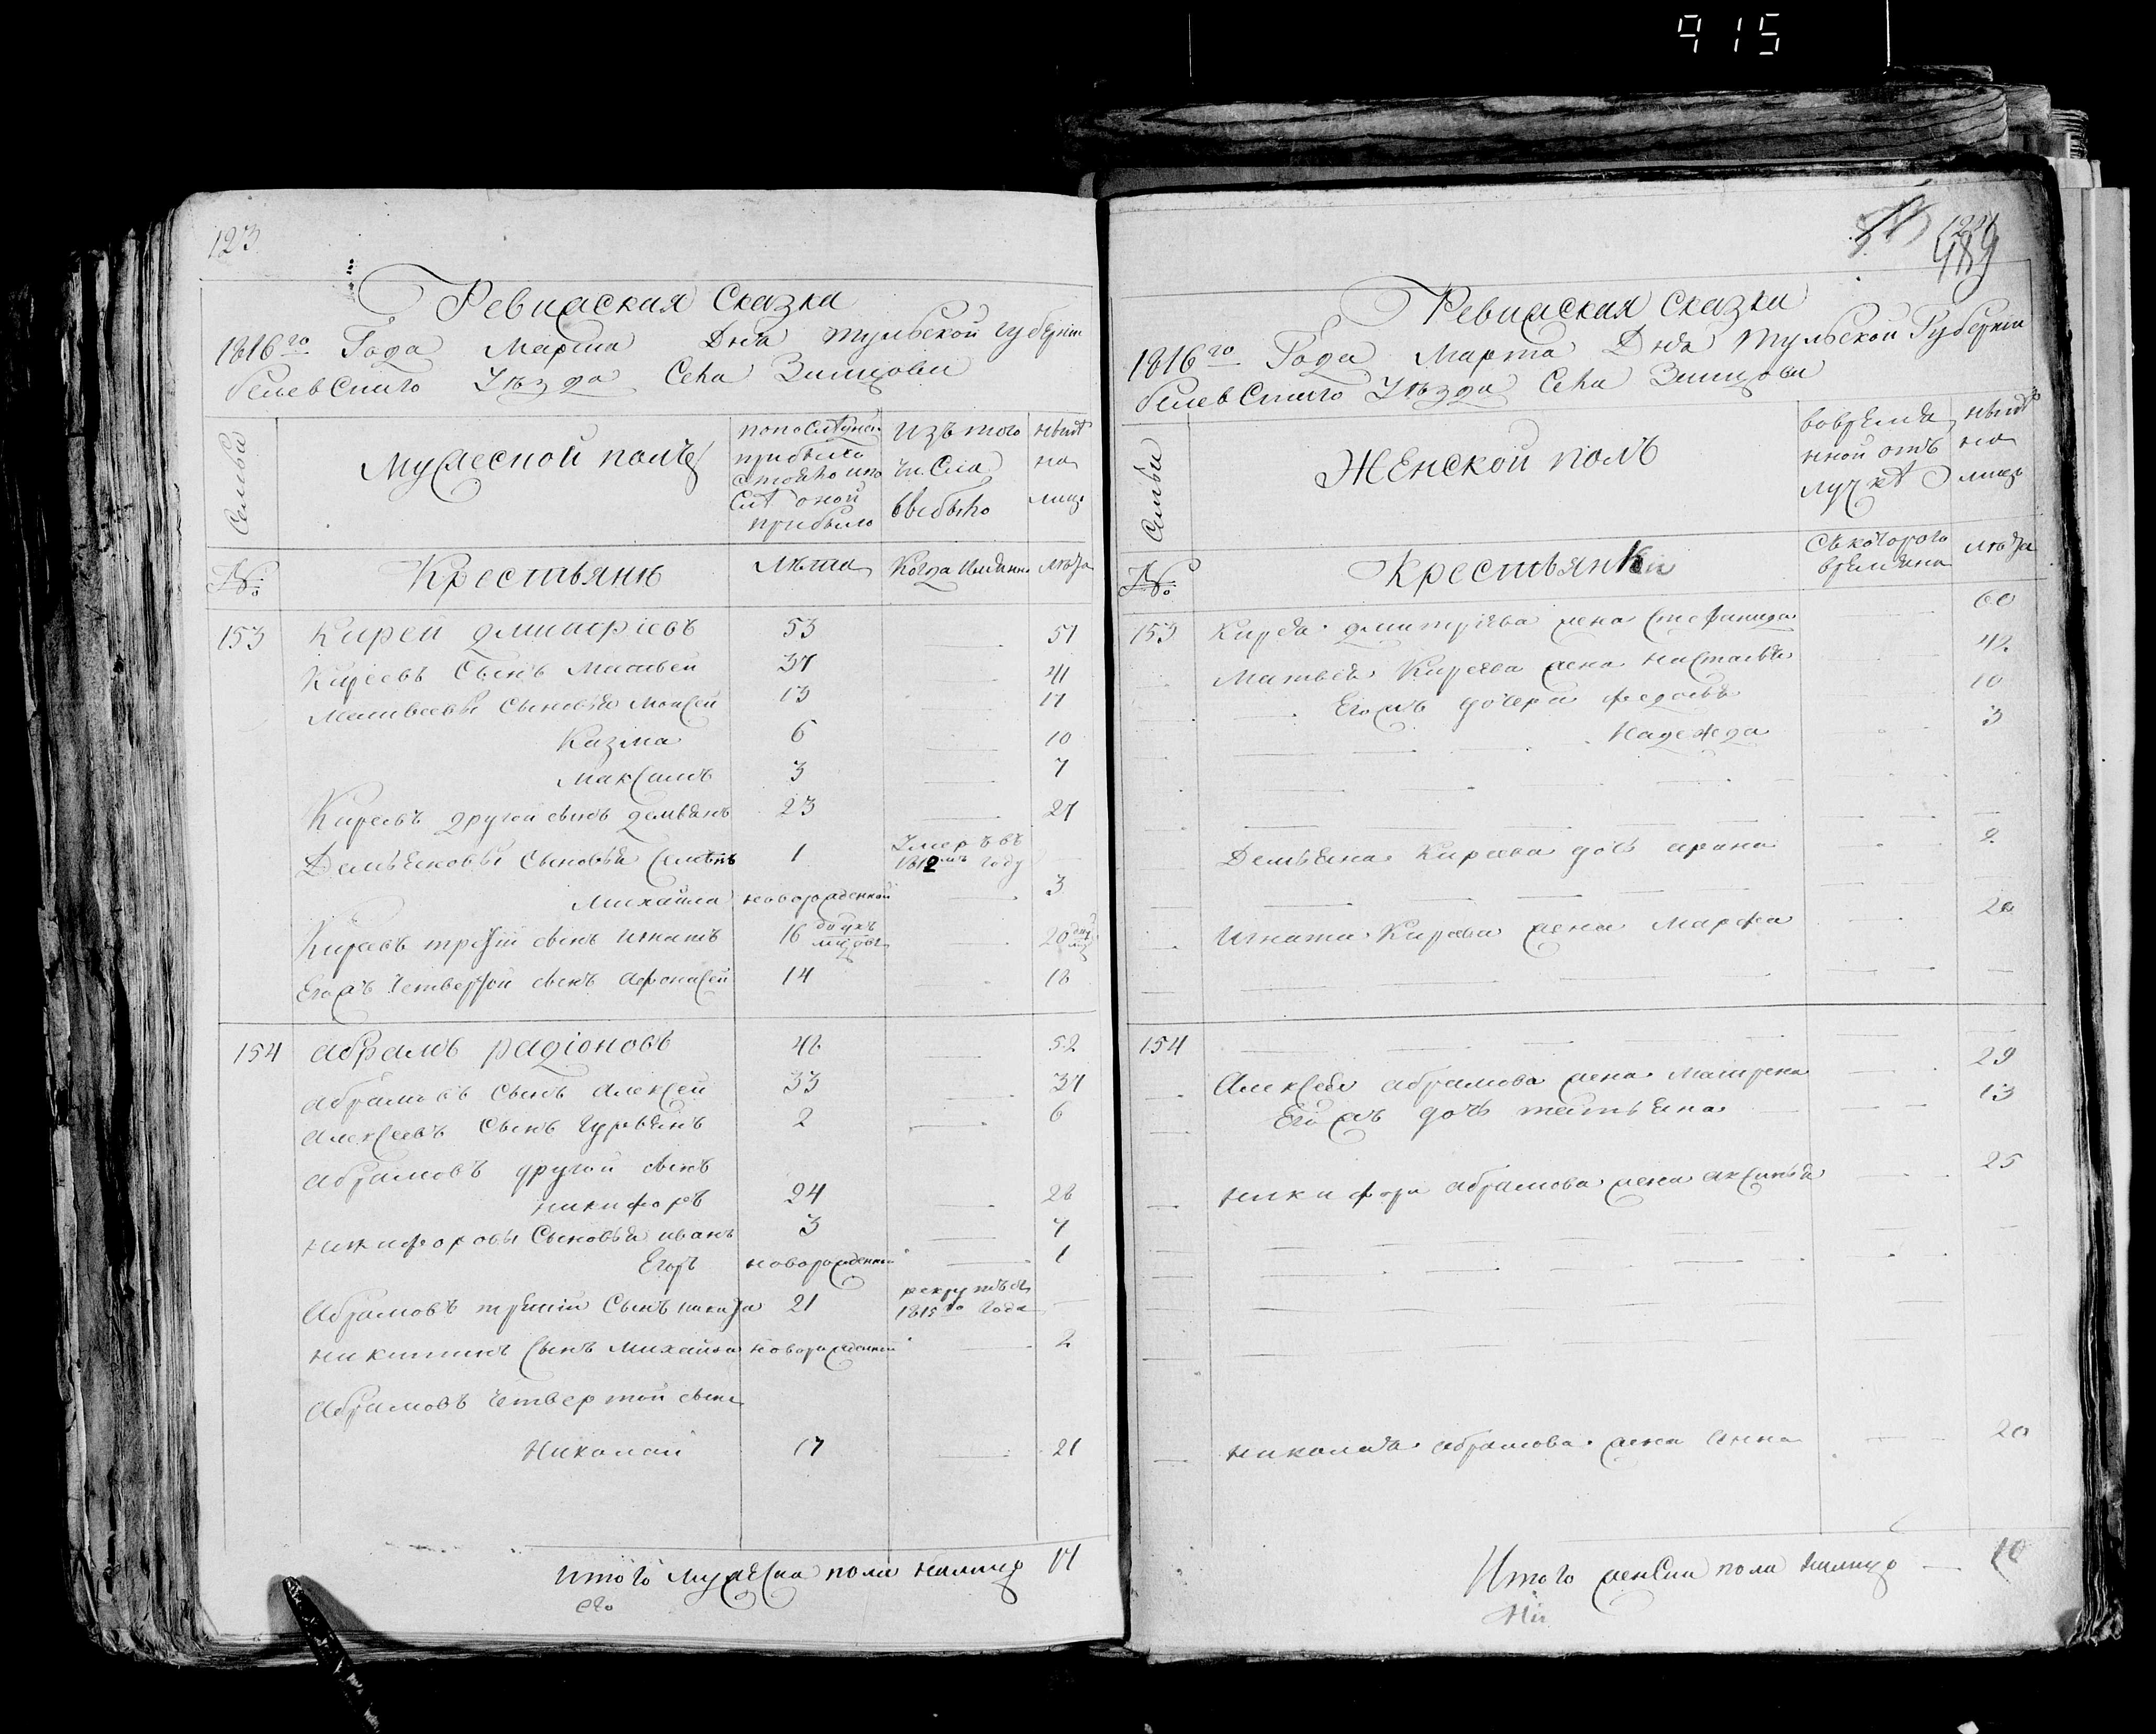 915
123
Ревиская Сказка
1816го Года Марта Дня Тульской губернии
белевского Уезда Села Зинцови
Семьи
Мужеской полъ
изъ того числа выбыло
ныне на лицо
№
Крестьяне
Лѣта
Когда имянно
Лѣта
153 Кирей дмитріевъ 53 57
Киреевъ Сынъ Матвей 37 41
Матвеевы Сыновья Моисей 13 17
Казма 6 10
Максимъ 3 7
Киреевъ другой сынъ демьянъ 23 27
Демьяновы Сыновья Семенъ 1 Умеръ въ 1812мъ году
Михайла новорожденной 3
Киреевъ третiй сынъ игнатъ 16 20
Егожъ Четвертой сынъ афонасей 14 18
154 абрамъ радiоновъ 48 52
абрамовъ Сынъ Алексей 33 37
Алексеевъ Сынъ гурьянъ 2 6
абрамовъ другой сынъ
никифоръ 24 28
никифоровы Сыновья иванъ 3 7
Егоръ новорожденной 1
Абрамовъ третiй Сынъ никита 21 рекрутъ съ 1815го Года
никитинъ Сынъ Михайла новорожденной 2
Абрамовъ четвертой сынъ
Николай 17 21
итого мужеска пола налицо 17
489
Ревиская сказка
1816го Года Марта Дня Тульской Губернии
белевского Уезда Села Зинцови
Семьи
Женской полъ
ныне на лицо
№
Крестьянки
Съ которого времяни
лѣта
153 Кирея дмитрiева жена Стефанида 60
Матвея Киреева жена настасья 42
Егожъ дочери федосья 10
надежда 3
Демьяна Киреева дочь арина 2
игната Киреева жена Марфа 20
154
Алексея абрамова жена Матрена 29
Егожъ дочь татьяна 13
никифора абрамова жена аксинья 25
николая абрамова жена Анна 20
Итого женска пола налицо 10